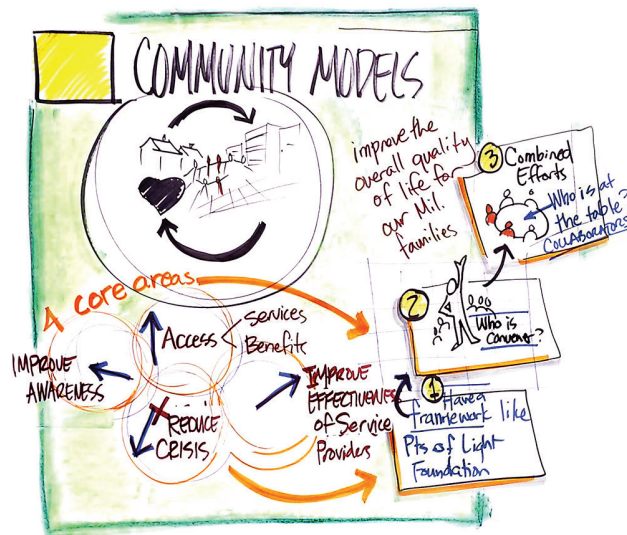 COMMUNITY MODELS
improve the
overall quality
of life for
our Mil.
families
4 core areas
Access
Services
Benefits
IMPROVE
AWARENESS
REDUCE
CRISIS
IMPROVE
EFFECTIVENESS
of Service
Providers
1
Have a
framework like
Pts of Light
Foundation
2
Who is
convener?
3
Combined
Efforts
Who is at
the table?
COLLABORATORS